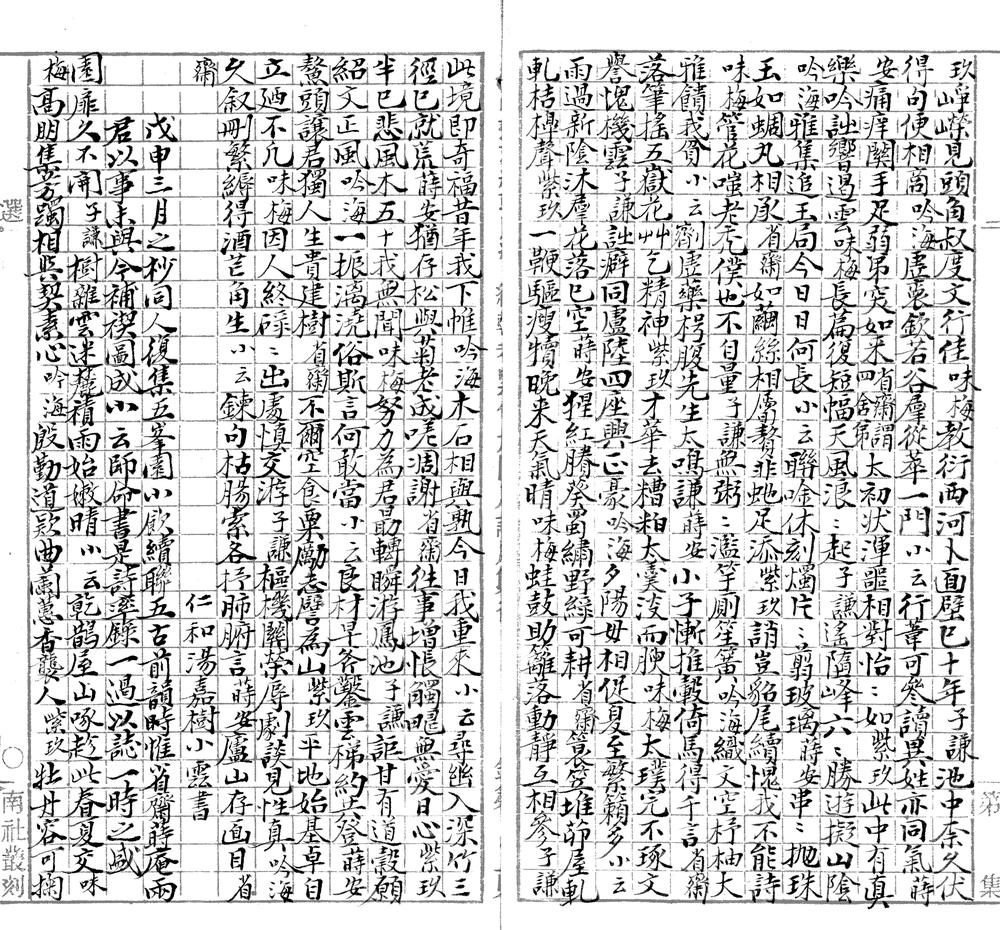 玖崢嶸見頭角叔度文行佳味梅教衍西河卜面壁已十年子謙池中奈久伏
得句便相商吟海虛衷欽若谷羣從萃一門小云行葦可參讀異姓亦同氣蒔
安痛痒關手足弱弟突如来省齋謂四舍弟太初狀渾噩相對怡〻如紫玖此中有真
樂吟訩響遏雲味梅長篇復短幅天風浪〻起子謙遙隔峰六〻勝遊擬山陰
吟海雅集追玉局今日日何長小云聯唫休刻燭片〻翦玻璃蒔安串〻抛珠
玉如蜩丸相承省齋如繭絲相屬贅非虵足添紫玖誚豈貂尾續愧我不能詩
味梅管花嗤老禿僕也不自量子謙無粥〻濫竽厠笙簧吟海織文空杼柚大
雅饋我貧小云劑虛藥枵腹先生太鳴謙蒔安小子慚推轂倚馬得千言省齋
落筆搖五嶽花艸乞精神紫玖才華去糟粕太羹沒而腴味梅太璞完不琢文
譽愧機雲子謙訩癖同盧陸四座興正豪吟海夕陽毋相促夏至繁籟多小云
雨過新陰沐羣花落已空蒔安猩紅賸癸蜀繡野綠可耕省齋蓑笠堆茆屋軋
軋桔槹聲紫玖一鞭驅瘦犢晚来天氣晴味梅蛙鼓助籬落動靜互相參子謙
此境即奇福昔年我下帷吟海木石相與熟今日我重來小云尋幽入深竹三
徑已就荒蒔安猶存松與菊老成嗟凋謝省齋往事增悵觸暱無愛日心紫玖
半已悲風木五十我無聞味梅努力為君勗轉瞬游鳳池子謙詎甘有道穀願
紹文正風吟海一振漓澆俗斯言何敢當小云良材早各鑿雲梯約共登蒔安
鰲頭讓君獨人生貴建樹省齋不爾空食粟勵志譬為山紫玖平地始基卓自
立迺不凡味梅因人終碌〻出處慎交游子謙樞機關榮辱劇談見性真吟海
久叙刪繁縟得酒芒角生小云鍊句枯腸索各抒肺腑言蒔安廬山存面目省
齋
仁和湯嘉樹小雲書
戊申三月之杪同人復集五峯園小飲續聯五古前韻時惟省齋蒔庵兩
君以事未與今補禊圖成小云師命書是詩率錄一過以誌一時之盛
園扉久不開子謙樹離雲迷麓積雨始嫩晴小云乾鵲屋山啄趁此春夏交味
梅高朋集芳躅相與契素心吟海殷勤道款曲蘭蕙香襲人紫玖牡丹容可掬
選
第
集
南社叢刻